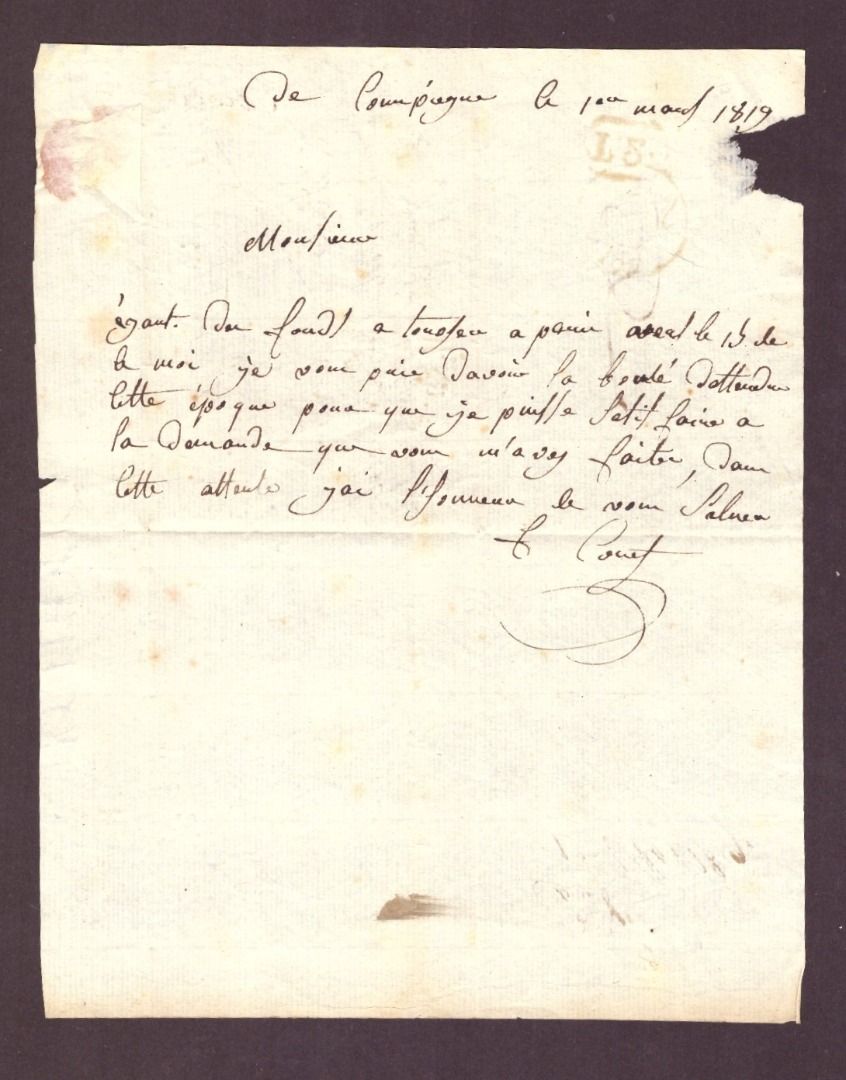 De Compiegne le 1er mars 1819
Monsieur
éyant des fonds a toucher a Paris avent le 15 de
ce moi je vous prie davoir la bonté dattendre
cette époque pour que je puisse satisfaire a
la demande que vous m'avez faites, dans
cette attente jai l'honneur de vous saluer